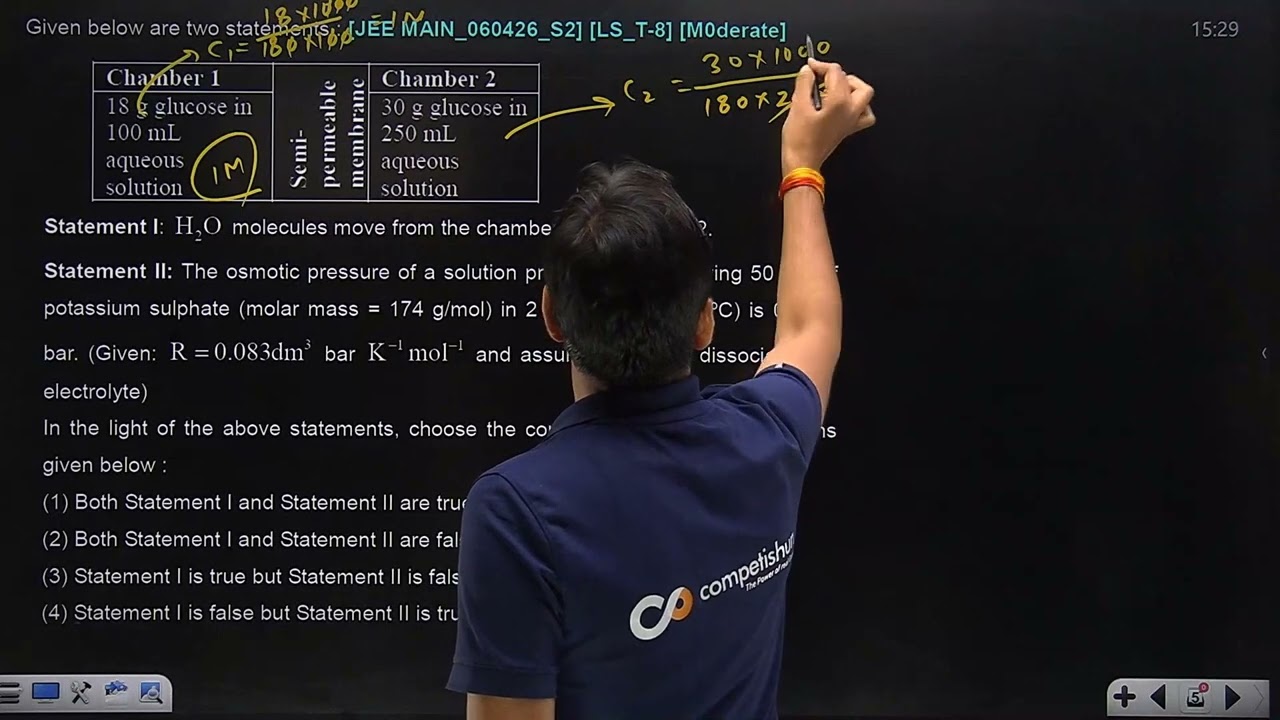 Given below are two statements : [JEE MAIN_060426_S2] [LS_T-8] [M0derate]
15:29
C₁ = 18 × 1000 / 180 × 100 = 1M
Chamber 1
18 g glucose in
100 mL
aqueous
solution
1M
Semi-
permeable
membrane
Chamber 2
30 g glucose in
250 mL
aqueous
solution
C₂ = 30 × 1000 / 180 × 2
Statement I: H₂O molecules move from the 2.
Statement II: The osmotic pressure of a solution 50
potassium sulphate (molar mass = 174 g/mol) in 2 is
bar. (Given: R = 0.083dm³ bar K⁻¹ mol⁻¹ and
electrolyte)
In the light of the above statements, choose the
given below :
(1) Both Statement I and Statement II are
(2) Both Statement I and Statement II are
(3) Statement I is true but Statement II is
(4) Statement I is false but Statement II is
competishun
The Power of
5